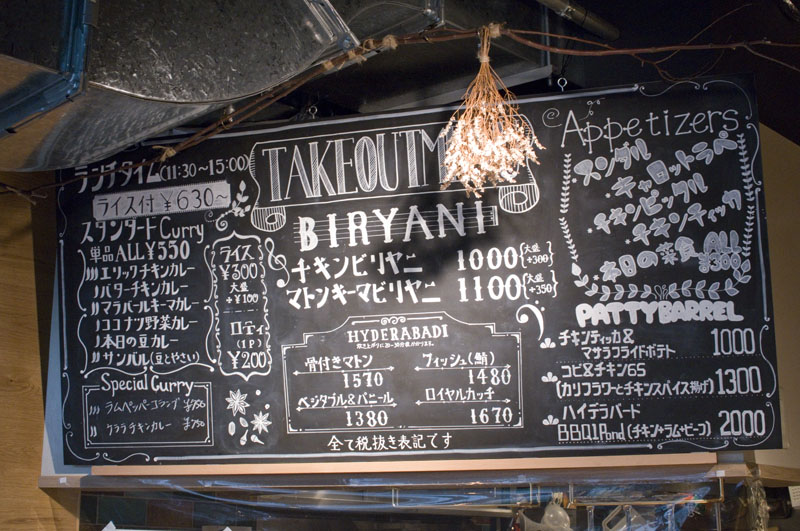 ランチタイム(11:30〜15:00)
ライス付 ¥630〜
スタンダードCurry
単品ALL¥550
エリックチキンカレー
バターチキンカレー
マラバールキーマカレー
ココナツ野菜カレー
本日の豆カレー
サンバル(豆とやさい)
ライス
¥300
大盛
+¥100
ロティ
(1P)
¥200
Special Curry
ラムペッパー
¥750
ケララチキンカレー ¥750
TAKEOUT
BIRYANi
チキンビリヤニ 1000 (大盛 +300)
マトンキーマビリヤニ 1100 (大盛 +350)
HYDERABADI
骨付きマトン
1570
フィッシュ(鯖)
1480
ベジタブル&パニール
1380
ロイヤルカッチ
1670
全て税抜き表記です
Appetizers
スンダル
キャロットラペ
チキンピックル
チキンティッカ
本日の菜食 ALL
¥300
PATTYBARREL
チキンティッカ&
マサラフライドポテト 1000
コビ&チキン65
(カリフラワーとチキンスパイス揚げ) 1300
ハイデラバード
BBQ1Pond(チキン・ラム・ビーフ) 2000